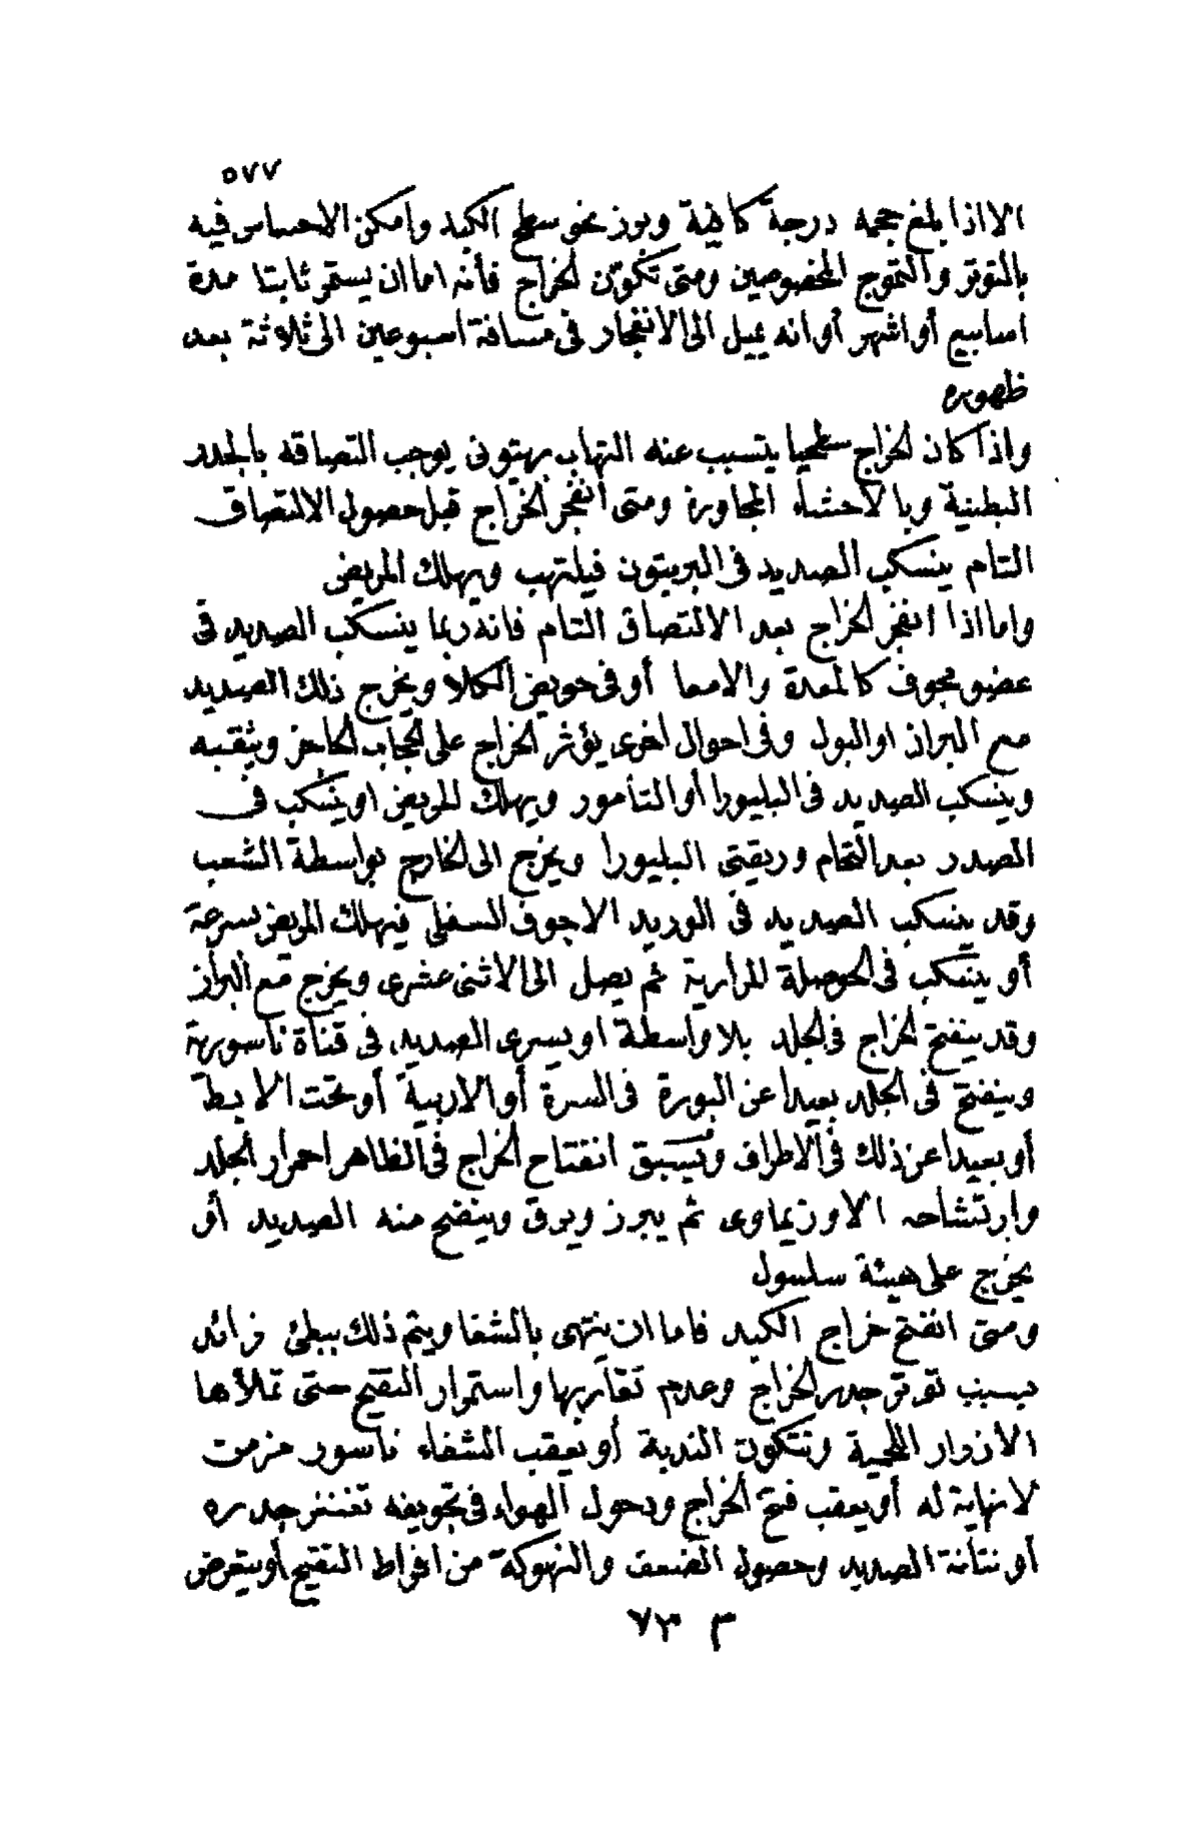 ٥٧٧
الا اذا بلغ حجمه درجة كافية وبرز نحو سطح الكبد وامكن الاحساس فيه
بالتوتر والتموج المخصوصين ومتى تكوّن الخراج فأنه اما ان يستمر ثابتا مدة
اسابيع أو اشهر أو انه يميل الى الانفجار فى مسافة اسبوعين الى ثلاثة بعد
ظهوره
واذا كان الخراج سطحيا يتسبب عنه التهاب بريتونى يوجب التصاقه بالجدر
البطنية وبالاحشاء المجاورة ومتى انفجر الخراج قبل حصول الالتصاق
التام ينسكب الصديد فى البريتون فيلتهب ويهلك المريض
واما اذا انفجر الخراج بعد الالتصاق التام فانه ربما ينسكب الصديد فى
عضو مجوف كالمعدة والامعا أو فى حويض الكلا ويخرج ذلك الصديد
مع البراز او البول وفى احوال اخرى يؤثر الخراج على الحجاب الحاجز ويثقبه
وينسكب الصديد فى البليورا أو التامور ويهلك المريض او ينسكب فى
الصدر بعد التحام وريقتى البليورا ويخرج الى الخارج بواسطة الشعب
وقد ينسكب الصديد فى الوريد الاجوف السفلى فيهلك المريض بسرعة
أو ينسكب فى الحوصلة المرارية ثم يصل الى الاثنى عشرى ويخرج مع البراز
وقد ينفتح الخراج فى الجلد بلا واسطة او يسرى الصديد فى قناة ناسورية
وينفتح فى الجلد بعيدا عن البورة فى السرة أو الاربية أو تحت الابط
أو بعيدا عن ذلك فى الاطراف ويسبق انفتاح الخراج فى الظاهر احمرار الجلد
وارتشاحه الاوزيماوى ثم يبرز ويرق وينضح منه الصديد أو
يخرج على هيئة سلسول
ومتى انفتح خراج الكبد فاما ان ينتهى بالشفا ويتم ذلك ببطئ زائد
بسبب توتر جدر الخراج وعدم تقاربها واستمرار التقيح حتى تملأها
الازرار اللحمية وتتكون الندبة أو يعقب الشفاء ناسور مزمن
لا نهاية له أو يعقب فتح الخراج ودخول الهواء فى تجويفه تغنغر جدره
أو نتانة الصديد وحصول الضعف والنهوكة من افراط التقيح أو يتعرض
م ٧٣